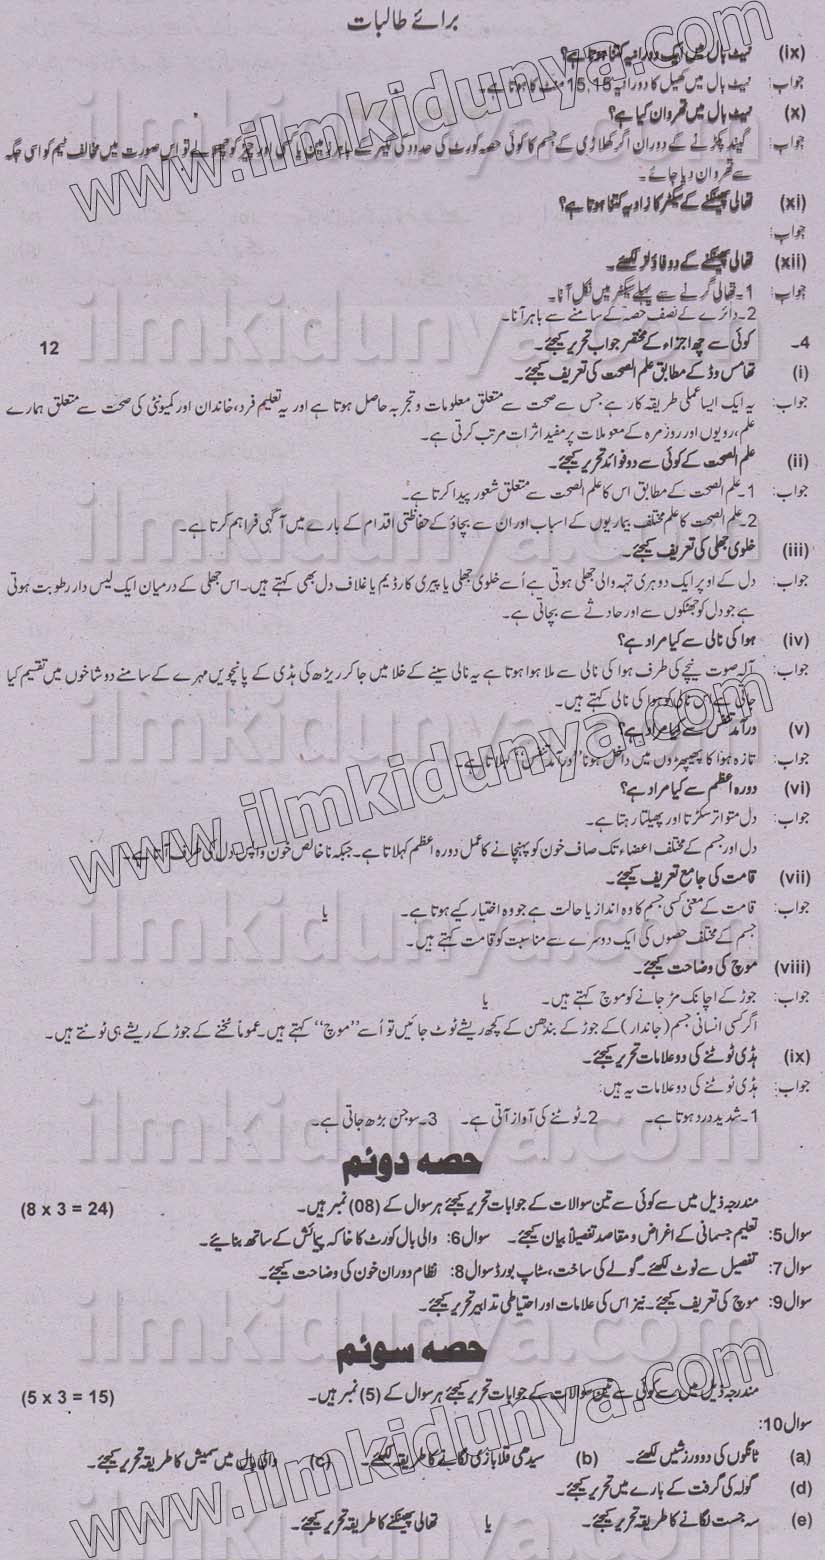 برائے طالبات
(ix) نیٹ بال میں ایک دورانیہ کتنا ہوتا ہے؟
جواب: نیٹ بال میں کھیل کا دورانیہ 15,15 منٹ کا ہوتا ہے۔
(x) نیٹ بال میں تھروان کیا ہے؟
جواب: گیند پکڑنے کے دوران اگر کھلاڑی کے جسم کا کوئی حصہ کورٹ کی حدود کی لکیر کے باہر زمین یا کسی اور چیز کو چھولے تو اس صورت میں مخالف ٹیم کو اسی جگہ
سے تھروان دیا جائے۔
(xi) تھالی پھینکنے کے سیکٹر کا زاویہ کتنا ہوتا ہے؟
جواب:
(xii) تھالی پھینکنے کے دو فاؤلز لکھئے۔
جواب: 1۔ تھالی گرنے سے پہلے سیکٹر میں نکل آنا۔
2۔ دائرے کے نصف حصہ کے سامنے سے باہر آنا۔
4۔ کوئی سے چھ اجزاء کے مختصر جواب تحریر کیجئے۔ 12
(i) تھامس وڈ کے مطابق علم الصحت کی تعریف کیجئے۔
جواب: یہ ایک ایسا عملی طریقہ کار ہے جس سے صحت سے متعلق معلومات و تجربہ حاصل ہوتا ہے اور یہ تعلیم فرد، خاندان اور کمیونٹی کی صحت سے متعلق ہمارے
علم، رویوں اور روزمرہ کے معولات پر مفید اثرات مرتب کرتی ہے۔
(ii) علم الصحت کے کوئی سے دو فوائد تحریر کیجئے۔
جواب: 1۔ علم الصحت کے مطابق اس کا علم الصحت سے متعلق شعور پیدا کرتا ہے۔
2۔ علم الصحت کا علم مختلف بیماریوں کے اسباب اور ان سے بچاؤ کے حفاظتی اقدام کے بارے میں آگہی فراہم کرتا ہے۔
(iii) خلوی جھلی کی تعریف کیجئے۔
جواب: دل کے اوپر ایک دوہری تہہ والی جھلی ہوتی ہے اُسے خلوی جھلی یا پیری کارڈیم یا غلاف دل بھی کہتے ہیں۔ اس جھلی کے درمیان ایک لیس دار رطوبت ہوتی
ہے جو دل کو جھٹکوں سے اور حادثے سے بچاتی ہے۔
(iv) ہوا کی نالی سے کیا مراد ہے؟
جواب: آلہ صوت نیچے کی طرف ہوا کی نالی سے ملا ہوا ہوتا ہے یہ نالی سینے کے خلا میں جا کر ریڑھ کی ہڈی کے پانچویں مہرے کے سامنے دو شاخوں میں تقسیم کیا
جاتی ہے اس نالی کو ہوا کی نالی کہتے ہیں۔
(v) درآمد تنفس سے کیا مراد ہے؟
جواب: تازہ ہوا کا پھیپھڑوں میں داخل ہونا ''درآمد تنفس'' کہلاتا ہے۔
(vi) دورہ اعظم سے کیا مراد ہے؟
جواب: دل متواتر سکڑتا اور پھیلتا رہتا ہے۔
دل اور جسم کے مختلف اعضاء تک صاف خون کو پہنچانے کا عمل دورہ اعظم کہلاتا ہے۔ جبکہ ناخالص خون واپس دل کی طرف آتا ہے۔
(vii) قامت کی جامع تعریف کیجئے۔
جواب: قامت کے معنی کسی جسم کا وہ انداز یا حالت ہے جو وہ اختیار کیے ہوتا ہے۔ یا
جسم کے مختلف حصوں کی ایک دوسرے سے مناسبت کو قامت کہتے ہیں۔
(viii) موچ کی وضاحت کیجئے۔
جواب: جوڑ کے اچانک مڑ جانے کو موچ کہتے ہیں۔ یا
اگر کسی انسانی جسم (جاندار) کے جوڑ کے بندھن کے کچھ ریشے ٹوٹ جائیں تو اُسے ''موچ'' کہتے ہیں۔ عموماً ٹخنے کے جوڑ کے ریشے ہی ٹوٹتے ہیں۔
(ix) ہڈی ٹوٹنے کی دو علامات تحریر کیجئے۔
جواب: ہڈی ٹوٹنے کی دو علامات یہ ہیں:
1۔ شدید درد ہوتا ہے۔ 2۔ ٹوٹنے کی آواز آتی ہے۔ 3۔ سوجن بڑھ جاتی ہے۔
حصہ دوئم
مندرجہ ذیل میں سے کوئی سے تین سوالات کے جوابات تحریر کیجئے ہر سوال کے (08) نمبر ہیں۔ (8 x 3 = 24)
سوال 5: تعلیم جسمانی کے اغراض و مقاصد تفصیلاً بیان کیجئے۔ سوال 6: والی بال کورٹ کا خاکہ پیمائش کے ساتھ بنائیے۔
سوال 7: تفصیل سے نوٹ لکھئے۔ گولے کی ساخت، سٹاپ بورڈ سوال 8: نظام دوران خون کی وضاحت کیجئے۔
سوال 9: موچ کی تعریف کیجئے۔ نیز اس کی علامات اور احتیاطی تدابیر تحریر کیجئے۔
حصہ سوئم
مندرجہ ذیل میں سے کوئی سے تین سوالات کے جوابات تحریر کیجئے ہر سوال کے (5) نمبر ہیں۔ (5 x 3 = 15)
سوال 10:
(a) ٹانگوں کی دو ورزشیں لکھئے۔ (b) سیدھی قلابازی لگانے کا طریقہ لکھئے۔ (c) والی بال میں سمیش کا طریقہ تحریر کیجئے۔
(d) گولہ کی گرفت کے بارے میں تحریر کیجئے۔
(e) سہ جست لگانے کا طریقہ تحریر کیجئے۔ یا تھالی پھینکنے کا طریقہ تحریر کیجئے۔
www.ilmkidunya.com